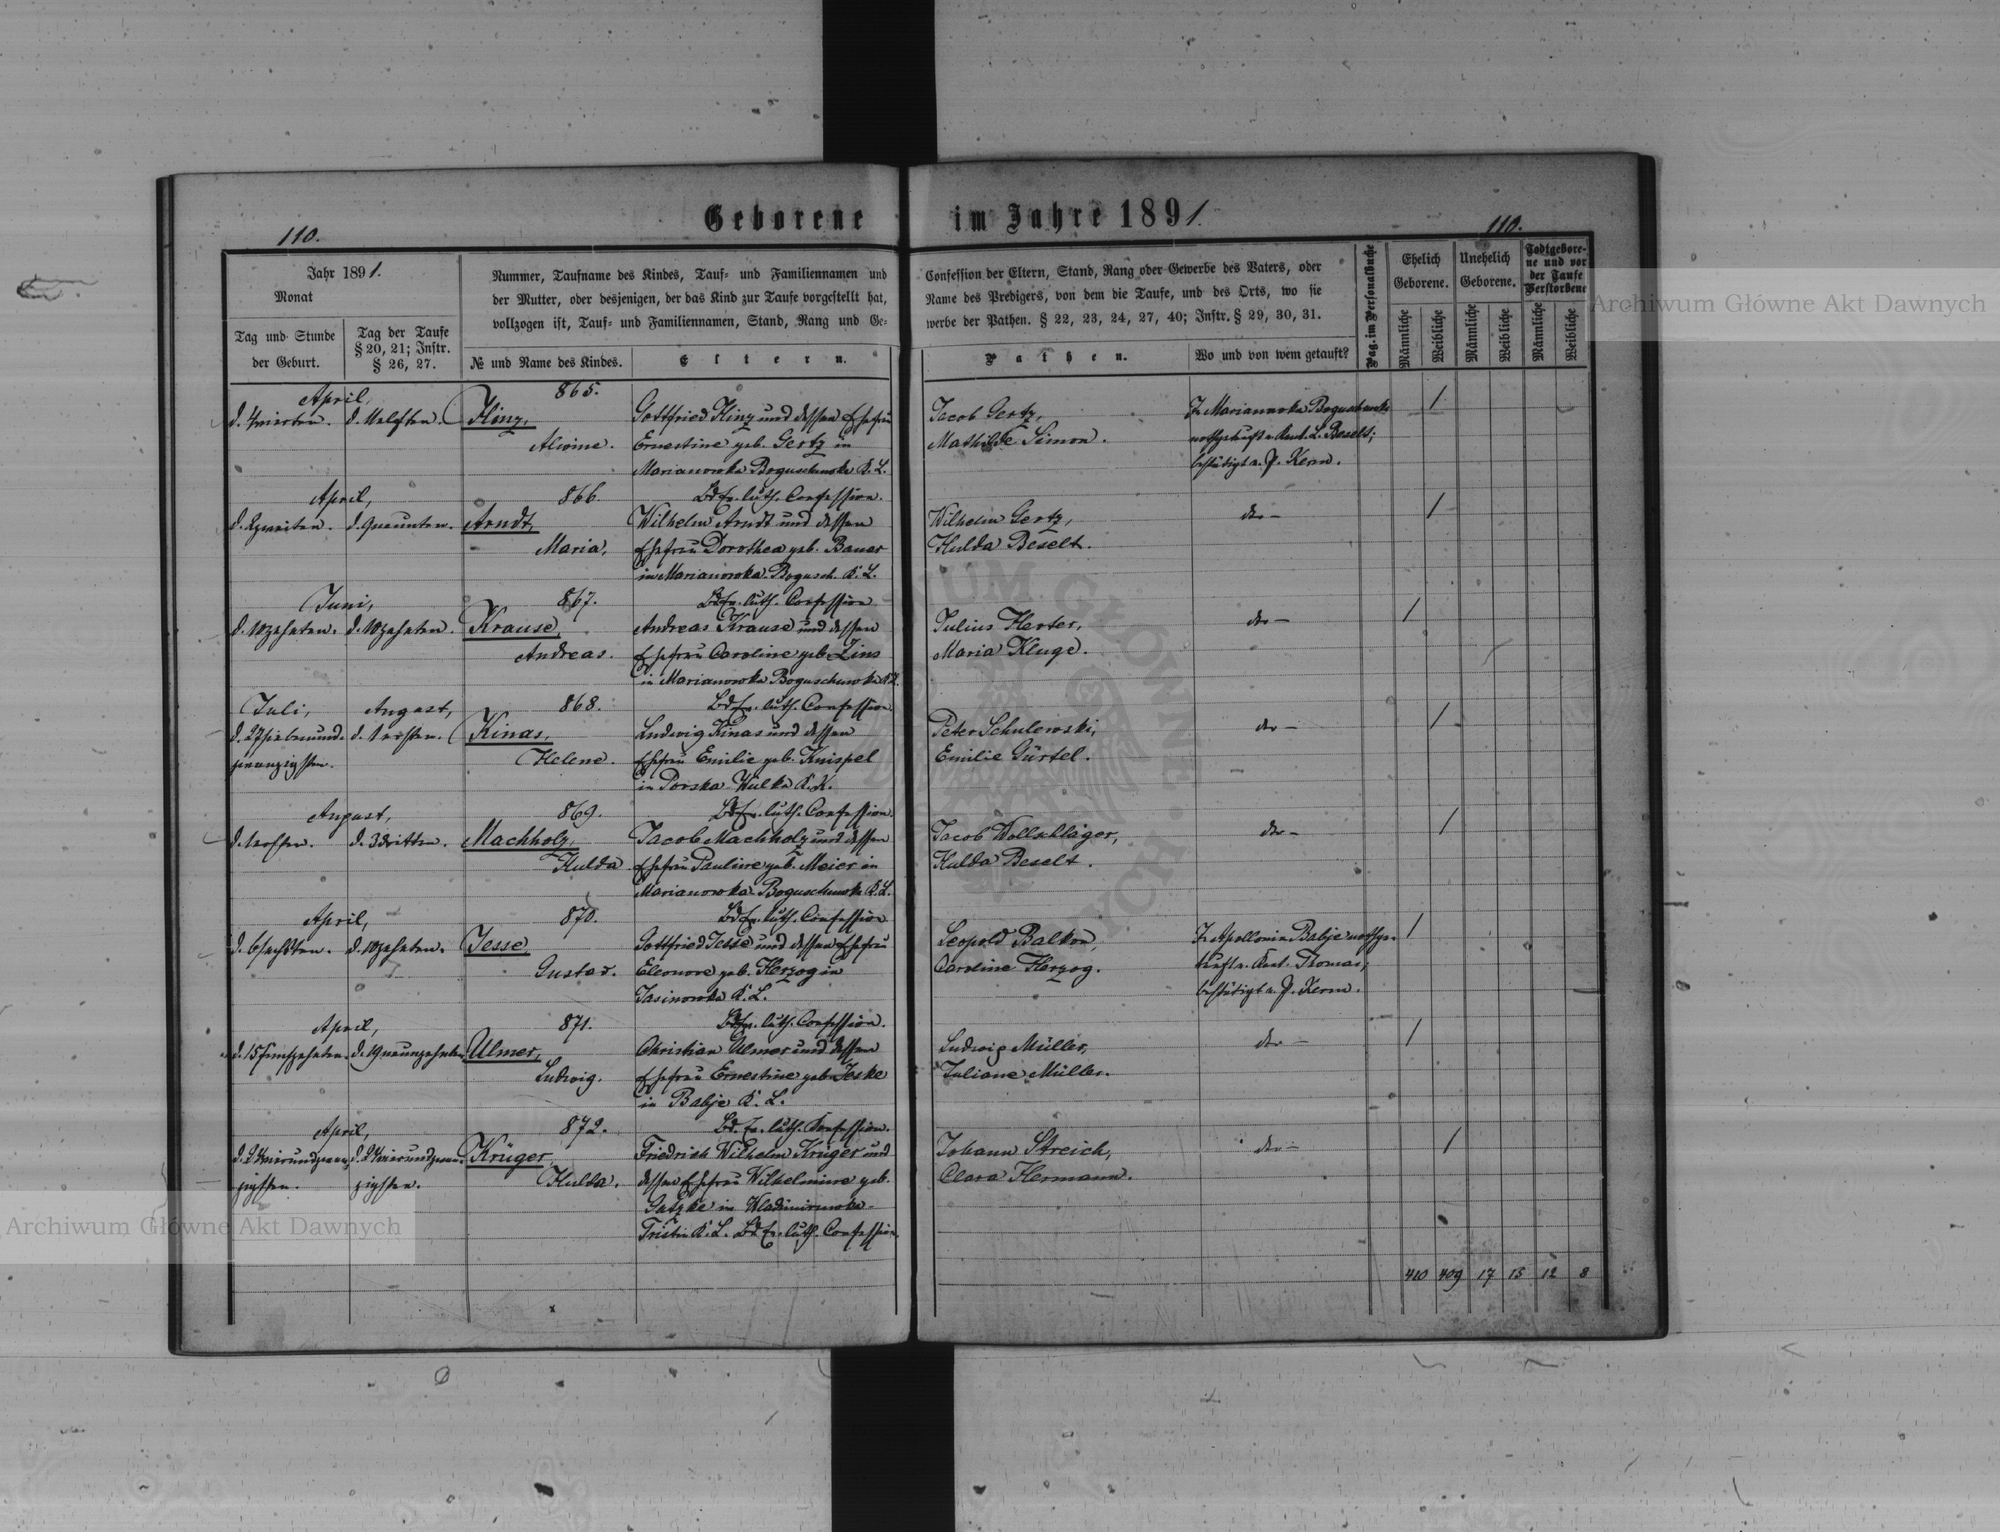 Geborene im Jahre 1891.
110.
110.
Jahr 1891.
Monat
Tag und Stunde
der Geburt.
Tag der Taufe
§ 20, 21; Instr.
§ 26, 27.
Nummer, Taufname des Kindes, Tauf- und Familiennamen und
der Mutter, oder desjenigen, der das Kind zur Taufe vorgestellt hat,
vollzogen ist, Tauf- und Familiennamen, Stand, Rang und Ge-
№ und Name des Kindes.
Eltern.
Confession der Eltern, Stand, Rang oder Gewerbe des Vaters, oder
Name des Predigers, von dem die Taufe, und des Orts, wo sie
werbe der Pathen. § 22, 23, 24, 27, 40; Instr. § 29, 30, 31.
Pathen.
Wo und von wem getauft?
Pag. im Personalbuche
Ehelich
Geborene.
Unehelich
Geborene.
Todtgebore-
ne und vor
der Taufe
Verstorbene
Männliche
Weibliche
Männliche
Weibliche
Männliche
Weibliche
April,
d. 4 vierten. d. 11 elften.
865.
Hinz,
Alwine.
Gottfried Hinz und dessen Ehefrau
Ernestine geb. Gertz in
Marianowka Boguschowka K. L.
Bd. ev. luth. Confession.
Jacob Gertz,
Mathilde Simon.
In Marianowka Boguschowka
nothgetauft v. Kant. L. Beselt;
bestätigt v. P. Kern.
1
April,
d. 2 zweiten. d. 9 neunten.
866.
Arndt,
Maria,
Wilhelm Arndt und dessen
Ehefrau Dorothea geb. Bauer
in Marianowka Bogusch. K. L.
Bd. ev. luth. Confession
Wilhelm Gertz,
Hulda Beselt.
do —
1
Juni,
d. 10 zehnten. d. 10 zehnten.
867.
Krause,
Andreas.
Andreas Krause und dessen
Ehefrau Caroline geb. Zins
in Marianowka Boguschowka K. L.
Bd. ev. luth. Confession
Julius Herter,
Maria Kluge.
do —
1
Juli, August,
d. 27 siebenund- d. 1 ersten.
zwanzigsten.
868.
Kinas,
Helene.
Ludwig Kinas und dessen
Ehefrau Emilie geb. Knispel
in Dorska Wulka K. K.
Bd. ev. luth. Confession
Peter Schulewski,
Emilie Gürtel.
do —
1
August,
d. 1 ersten. d. 3 dritten.
869.
Machholz,
Hulda
Jacob Machholz und dessen
Ehefrau Pauline geb. Meier in
Marianowka Boguschowka K. L.
Bd. ev. luth. Confession
Jacob Wollschläger,
Hulda Beselt.
do —
1
April,
d. 6 sechsten. d. 10 zehnten.
870.
Jesse
Gustav.
Gottfried Jesse und dessen Ehefrau
Eleonore geb. Herzog in
Jasinowka K. L.
Bd. ev. luth. Confession.
Leopold Balkon,
Caroline Herzog.
In Apollonia Babje nothge-
tauft v. Kant. Thomas;
bestätigt v. P. Kern.
1
April,
d. 15 fünfzehnten. d. 19 neunzehnten.
871.
Ulmer,
Ludwig.
Christian Ulmer und dessen
Ehefrau Ernestine geb. Jeske
in Babje K. L.
Bd. ev. luth. Confession.
Ludwig Müller,
Juliane Müller.
do —
1
April,
d. 24 vierundzwan- d. 24 vierundzwan-
zigsten. zigsten.
872.
Krüger,
Hulda.
Friedrich Wilhelm Krüger und
dessen Ehefrau Wilhelmine geb.
Gatzke in Wladimirowka-
Tristin K. L. Bd. ev. luth. Confession.
Johann Streich,
Clara Hermann.
do —
1
410 409 17 15 12 8
Archiwum Główne Akt Dawnych
Archiwum Główne Akt Dawnych